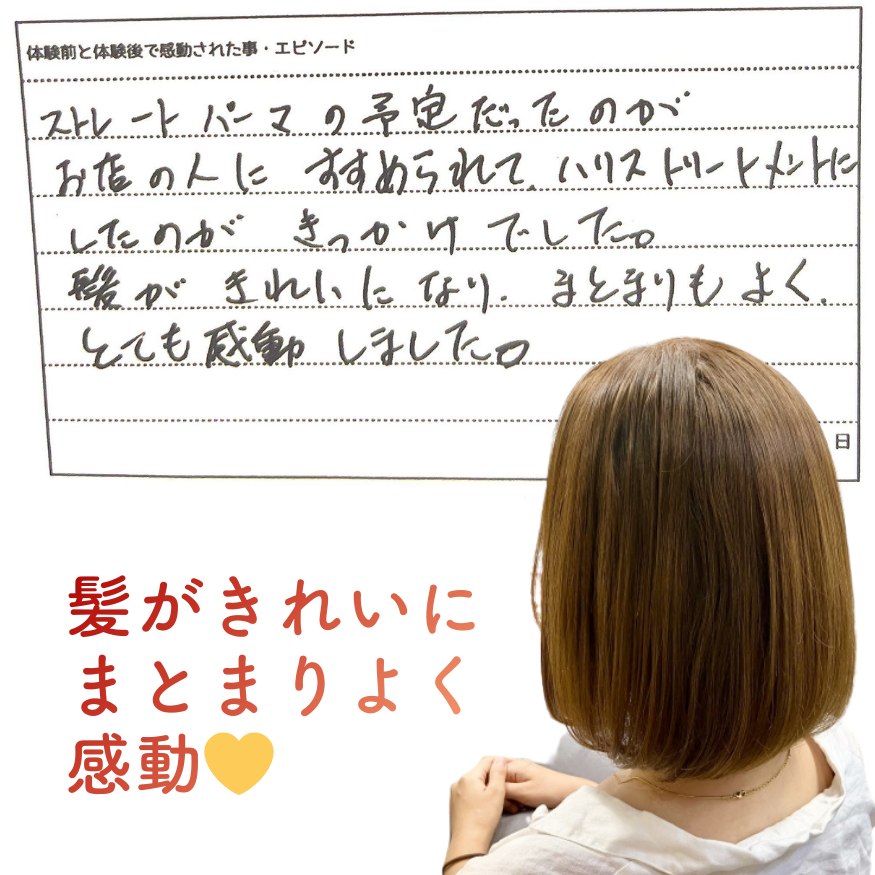 体験前と体験後で感動された事・エピソード
ストレートパーマの予定だったのが
お店の人にすすめられて、ハリストリートメントに
したのがきっかけでした。
髪がきれいになり、まとまりもよく、
とても感動しました。
日
髪がきれいに
まとまりよく
感動